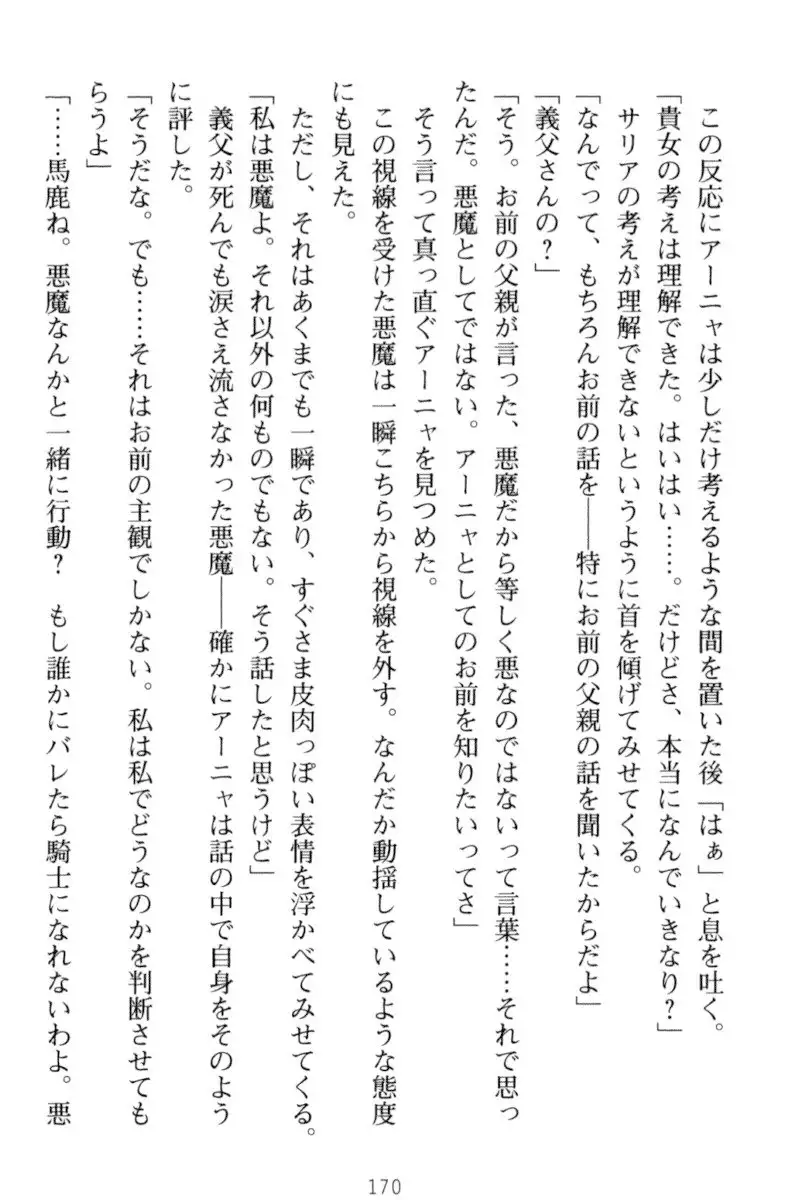 この反応にアーニャは少しだけ考えるような間を置いた後「はぁ」と息を吐く。
「貴女の考えは理解できた。はいはい……。だけどさ、本当になんでいきなり？」
　サリアの考えが理解できないというように首を傾げてみせてくる。
「なんでって、もちろんお前の話を――特にお前の父親の話を聞いたからだよ」
「義父さんの？」
「そう。お前の父親が言った、悪魔だから等しく悪なのではないって言葉……それで思っ
たんだ。悪魔としてではない。アーニャとしてのお前を知りたいってさ」
　そう言って真っ直ぐアーニャを見つめた。
　この視線を受けた悪魔は一瞬こちらから視線を外す。なんだか動揺しているような態度
にも見えた。
　ただし、それはあくまでも一瞬であり、すぐさま皮肉っぽい表情を浮かべてみせてくる。
「私は悪魔よ。それ以外の何ものでもない。そう話したと思うけど」
　義父が死んでも涙さえ流さなかった悪魔――確かにアーニャは話の中で自身をそのよう
に評した。
「そうだな。でも……それはお前の主観でしかない。私は私でどうなのかを判断させても
らうよ」
「……馬鹿ね。悪魔なんかと一緒に行動？　もし誰かにバレたら騎士になれないわよ。悪
170